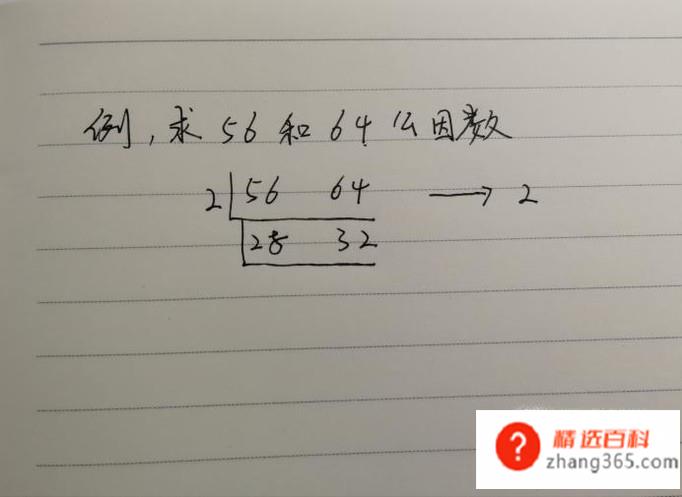 例，求 56 和 64 公因数
2 56 64 → 2
28 32
? 精选百科
zhang365.com